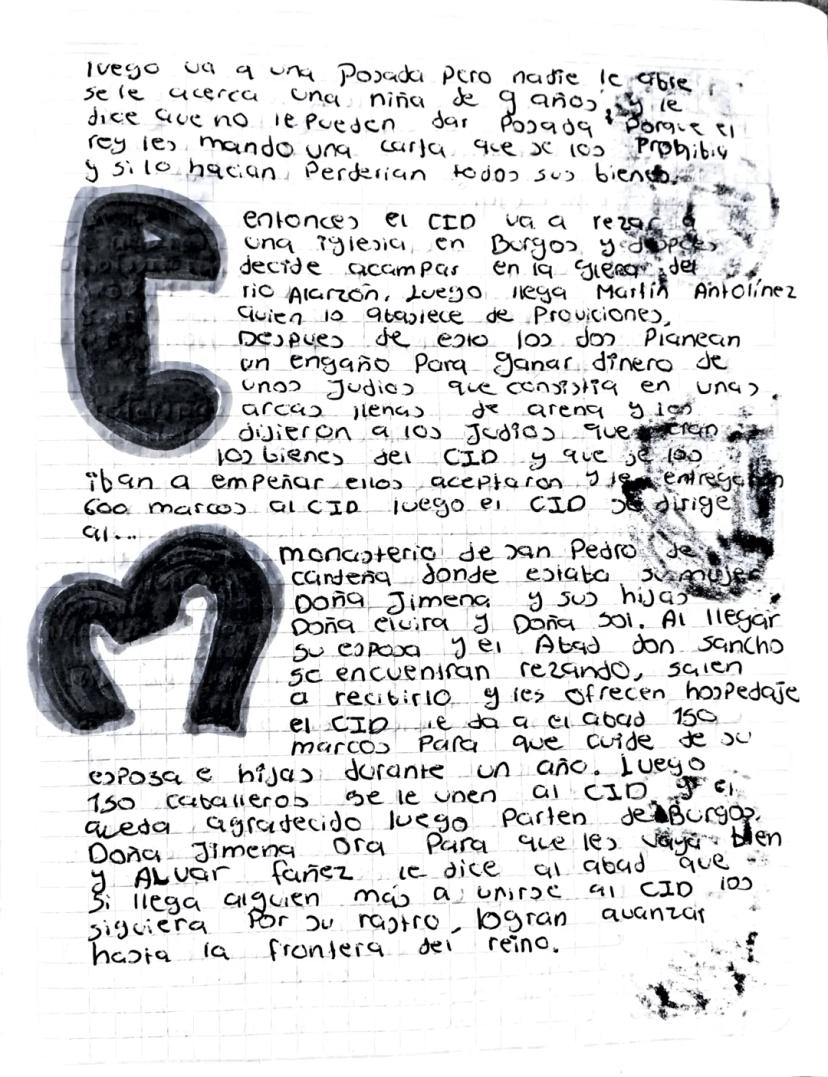 luego va a una Posada pero nadie le abre
se le acerca una niña de 9 años y le
dice que no le pueden dar Posada Porque el
rey les mando una carta que se los Prohibia
y si lo hacian Perderian todos sus bienes.
E entonces el CID va a rezar a
una iglesia en Burgos y despues
decide acampar en la glera del
rio Alarzón. Luego llega Martín Antolínez
quien lo abastece de Proviciones.
Despues de esto los dos Planean
un engaño Para ganar dinero de
unos Judios que consistia en unas
arcas llenas de arena y les
dijieron a los Judios que eran
los bienes del CID y que se los
iban a empeñar ellos aceptaron y le entregaron
600 marcos al CID luego el CID se dirige
al...
M monasterio de san Pedro de
cardeña donde estaba su mujer
Doña Jimena y sus hijas
Doña elvira y Doña Sol. Al llegar
su esposa y el Abad don sancho
se encuentran rezando, salen
a recibirlo y les ofrecen hospedaje
el CID le da a el abad 150
marcos Para que cuide de su
esposa e hijas durante un año. Luego
150 caballeros se le unen al CID y el
queda agradecido luego Parten de Burgos.
Doña Jimena ora Para que les vaya bien
y ALvar fañez le dice al abad que
si llega alguien más a unirse al CID los
siguiera Por su rastro, logran avanzar
hasta la frontera del reino.